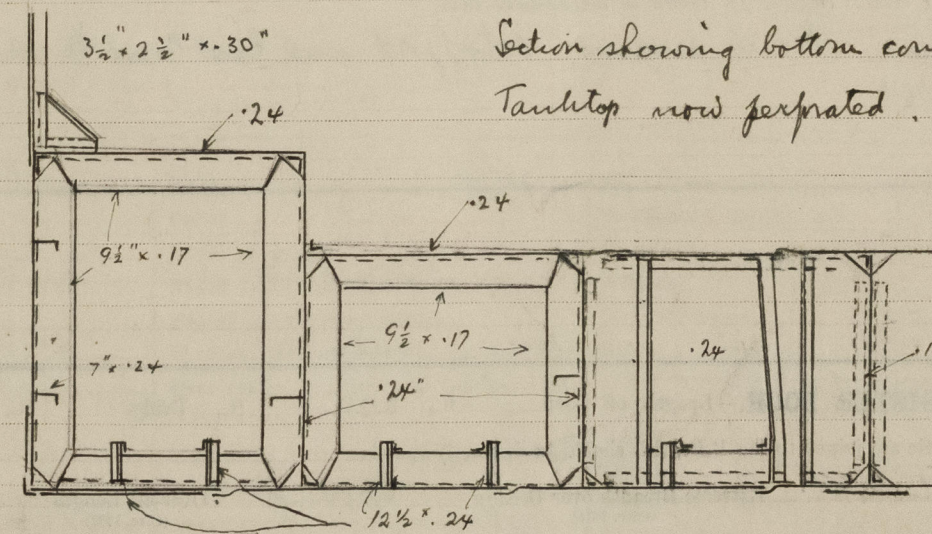 3½" x 2½" x .30"
Section showing bottom con
Tanktop now perfrated .
.24
.24
9½" x .17
9½ x .17
.24
7" x .24
.24"
.1
12½ x .24